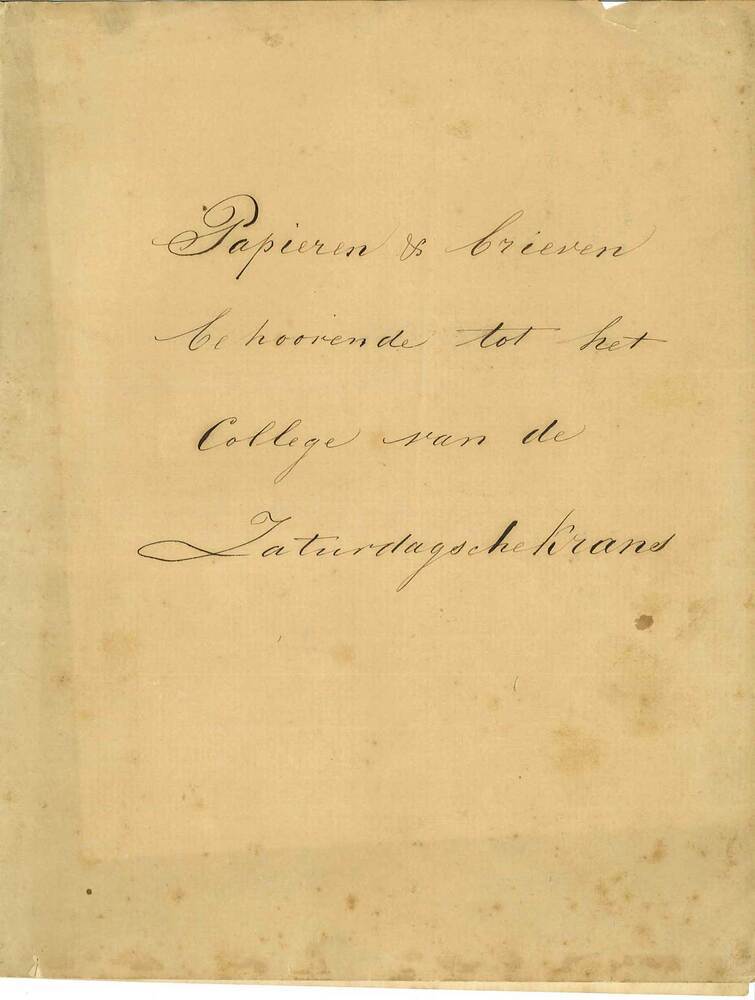 Papieren & brieven
behoorende tot het
College van de
Zaturdagsche Krans